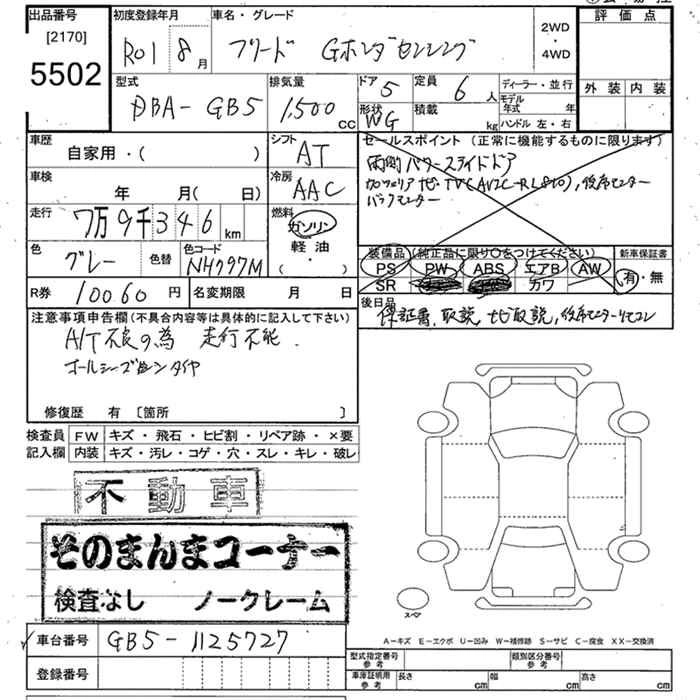 出品番号
[2170]
5502
初度登録年月
R01 8月
車名・グレード
フリード Gホンダセンシング
2WD
・
4WD
評価点
外装 内装
型式
DBA-GB5
排気量
1,500 cc
ドア 5
定員 6人
形状 WG
積載 kg
ディーラー・並行
モデル年式 年
ハンドル 左・右
車歴
自家用・( )
シフト
AT
車検
年 月( 日)
冷房
AAC
走行
7万9千346km
燃料
ガソリン
軽油
( ・ )
色
グレー
色替
色コード
NH797M
R券 10060円
名変期限 月 日
セールスポイント(正常に機能するものに限ります)
両側パワースライドドア
TV(AVIC-RL810),後席モニター
バックモニター
装備品(純正品に限り○をつけてください)
PS PW ABS エアB AW
SR カワ
新車保証書
有・無
後日品
保証書,取説,ナビ取説,後席モニターリモコン
注意事項申告欄(不具合内容等は具体的に記入して下さい)
A/T不良の為 走行不能.
オールシーズンタイヤ
修復歴 有〔箇所 〕
検査員 FW キズ・飛石・ヒビ割・リペア跡・×要
記入欄 内装 キズ・汚レ・コゲ・穴・スレ・キレ・破レ
不動車
そのまんまコーナー
検査なし ノークレーム
車台番号 GB5-1125727
登録番号
スペア
A−キズ E−エクボ U−凹み W−補修跡 S−サビ C−腐食 XX−交換済
型式指定番号 参考
類別区分番号 参考
車庫証明用 参考
長さ cm
幅 cm
高さ cm